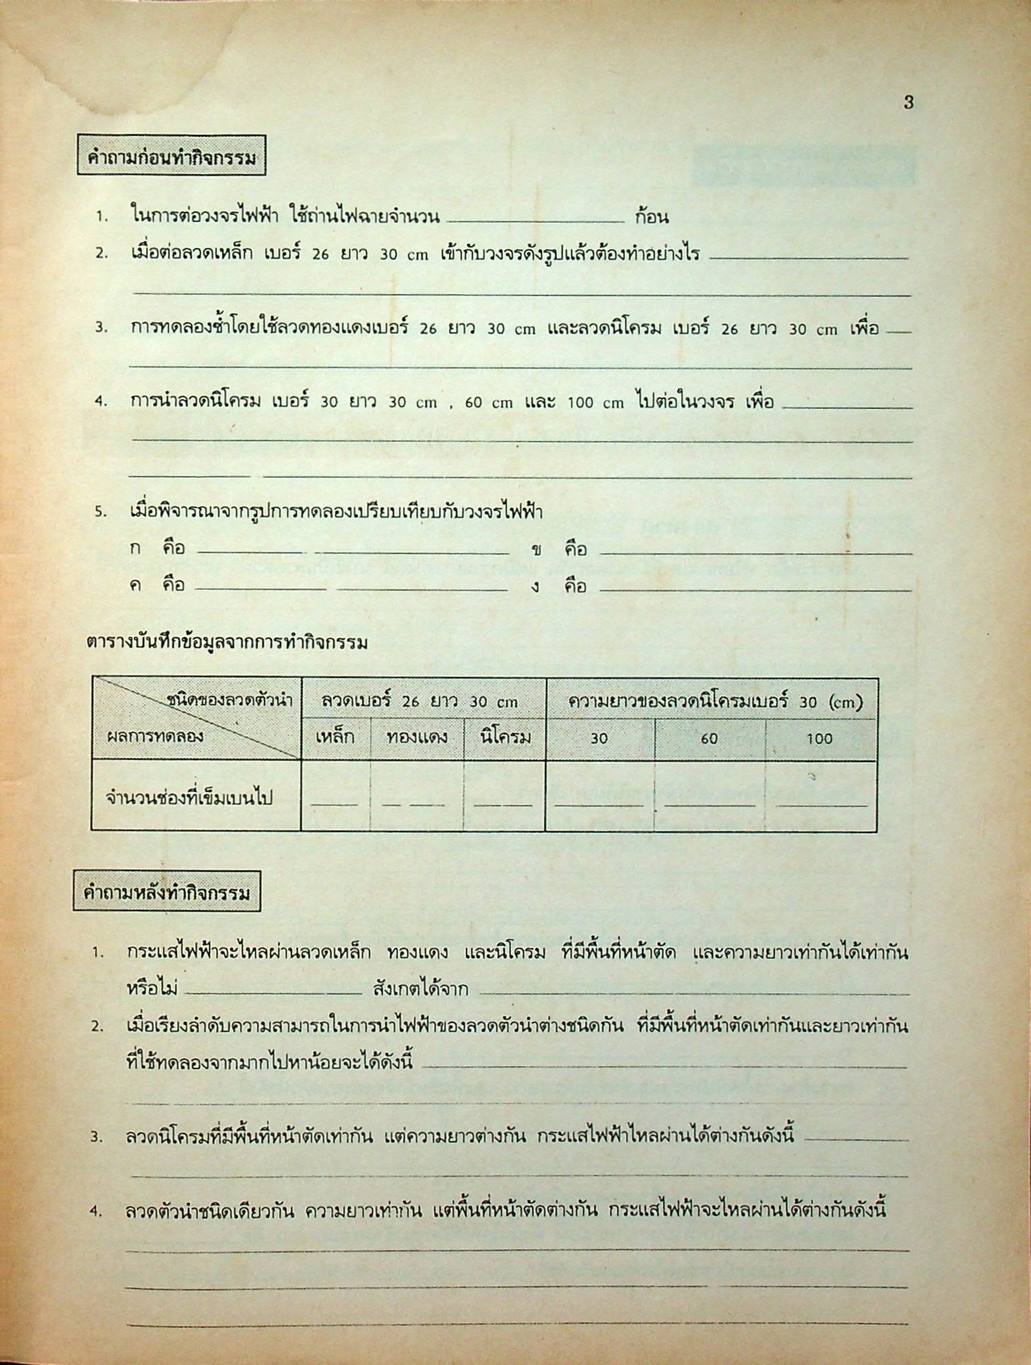 3
คำถามก่อนทำกิจกรรม
1. ในการต่อวงจรไฟฟ้า ใช้ถ่านไฟฉายจำนวน ก้อน
2. เมื่อต่อลวดเหล็ก เบอร์ 26 ยาว 30 cm เข้ากับวงจรดังรูปแล้วต้องทำอย่างไร
3. การทดลองซ้ำโดยใช้ลวดทองแดงเบอร์ 26 ยาว 30 cm และลวดนิโครม เบอร์ 26 ยาว 30 cm เพื่อ
4. การนำลวดนิโครม เบอร์ 30 ยาว 30 cm , 60 cm และ 100 cm ไปต่อในวงจร เพื่อ
5. เมื่อพิจารณาจากรูปการทดลองเปรียบเทียบกับวงจรไฟฟ้า
ก คือ ข คือ
ค คือ ง คือ
ตารางบันทึกข้อมูลจากการทำกิจกรรม
ชนิดของลวดตัวนำ ลวดเบอร์ 26 ยาว 30 cm ความยาวของลวดนิโครมเบอร์ 30 (cm)
ผลการทดลอง เหล็ก ทองแดง นิโครม 30 60 100
จำนวนช่องที่เข็มเบนไป
คำถามหลังทำกิจกรรม
1. กระแสไฟฟ้าจะไหลผ่านลวดเหล็ก ทองแดง และนิโครม ที่มีพื้นที่หน้าตัด และความยาวเท่ากันได้เท่ากัน
หรือไม่ สังเกตได้จาก
2. เมื่อเรียงลำดับความสามารถในการนำไฟฟ้าของลวดตัวนำต่างชนิดกัน ที่มีพื้นที่หน้าตัดเท่ากันและยาวเท่ากัน
ที่ใช้ทดลองจากมากไปหาน้อยจะได้ดังนี้
3. ลวดนิโครมที่มีพื้นที่หน้าตัดเท่ากัน แต่ความยาวต่างกัน กระแสไฟฟ้าไหลผ่านได้ต่างกันดังนี้
4. ลวดตัวนำชนิดเดียวกัน ความยาวเท่ากัน แต่พื้นที่หน้าตัดต่างกัน กระแสไฟฟ้าจะไหลผ่านได้ต่างกันดังนี้